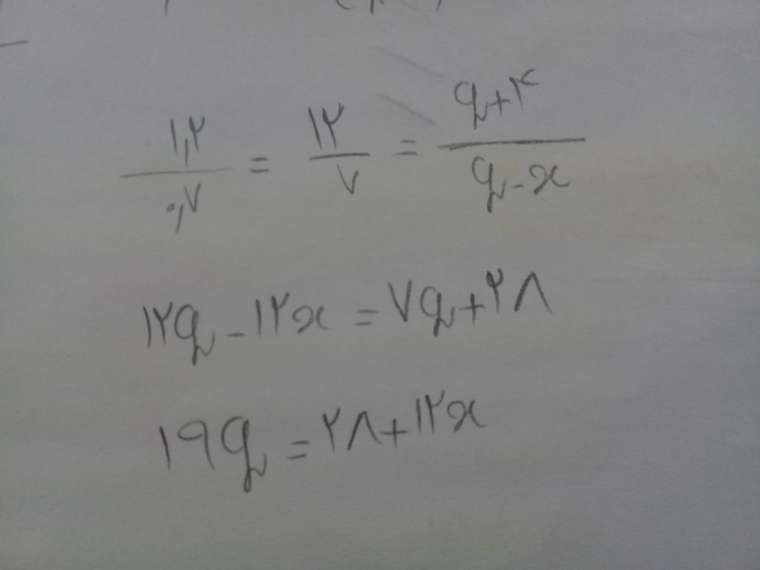 ۱,۲ / ۰,۷ = ۱۲ / ۷ = q+۴ / q-x
۱۲q - ۱۲x = ۷q + ۲۸
۱۹q = ۲۸ + ۱۲x